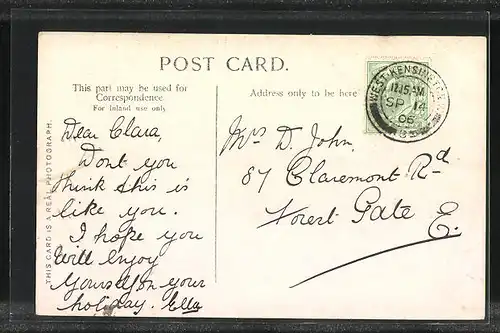 POST CARD.
This part may be used for
Correspondence
For Inland use only
Address only to be here
THIS CARD IS A REAL PHOTOGRAPH.
WEST KENSINGTON
12.15 AM
SP 14
06
Dear Clara,
Dont you
think this is
like you.
I hope you
will enjoy
yourself on your
holiday. Ella
Mrs D. John,
87 Claremont Rd
Forest Gate
E.